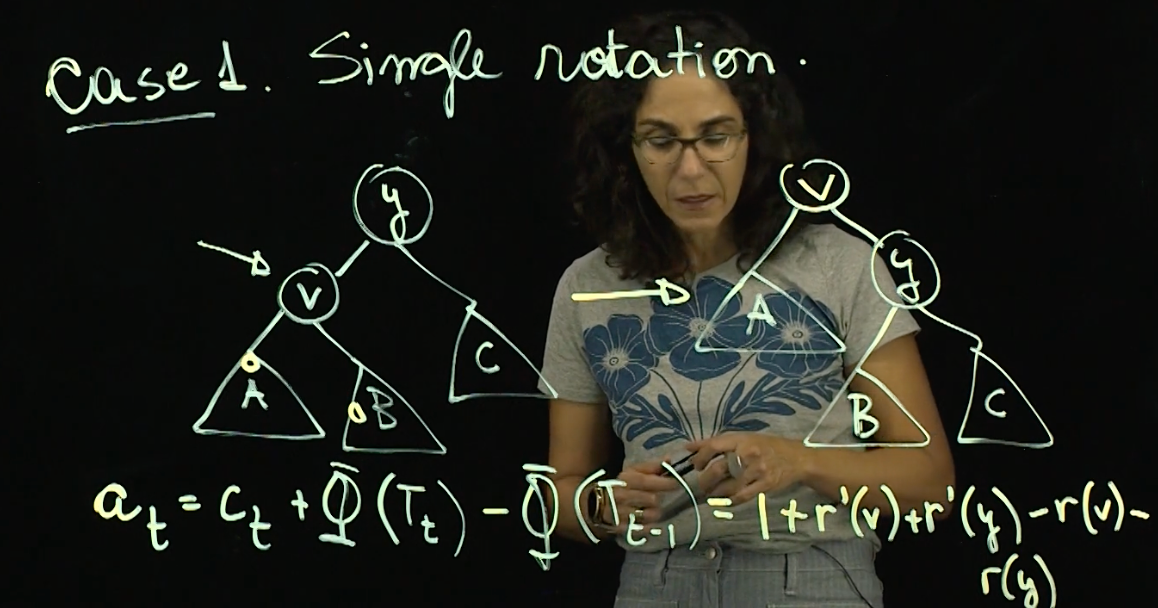 Case 1. Single rotation.
y
v
v
y
A
B
C
A
B
C
a_t = c_t + Φ(T_t) - Φ(T_{t-1}) = 1 + r'(v) + r'(y) - r(v) -
r(y)